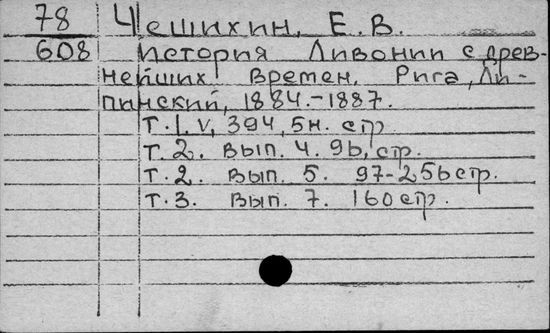 78 Чешихин, Е. В.
608 История Ливонии с древ-
нейших времен. Рига, Ли-
пинский, 1884.-1887.
т. I. V, 394, 5н. стр
т. 2. вып. 4. 96, стр.
т. 2. вып. 5. 97-256 стр.
т. 3. вып. 7. 160 стр.